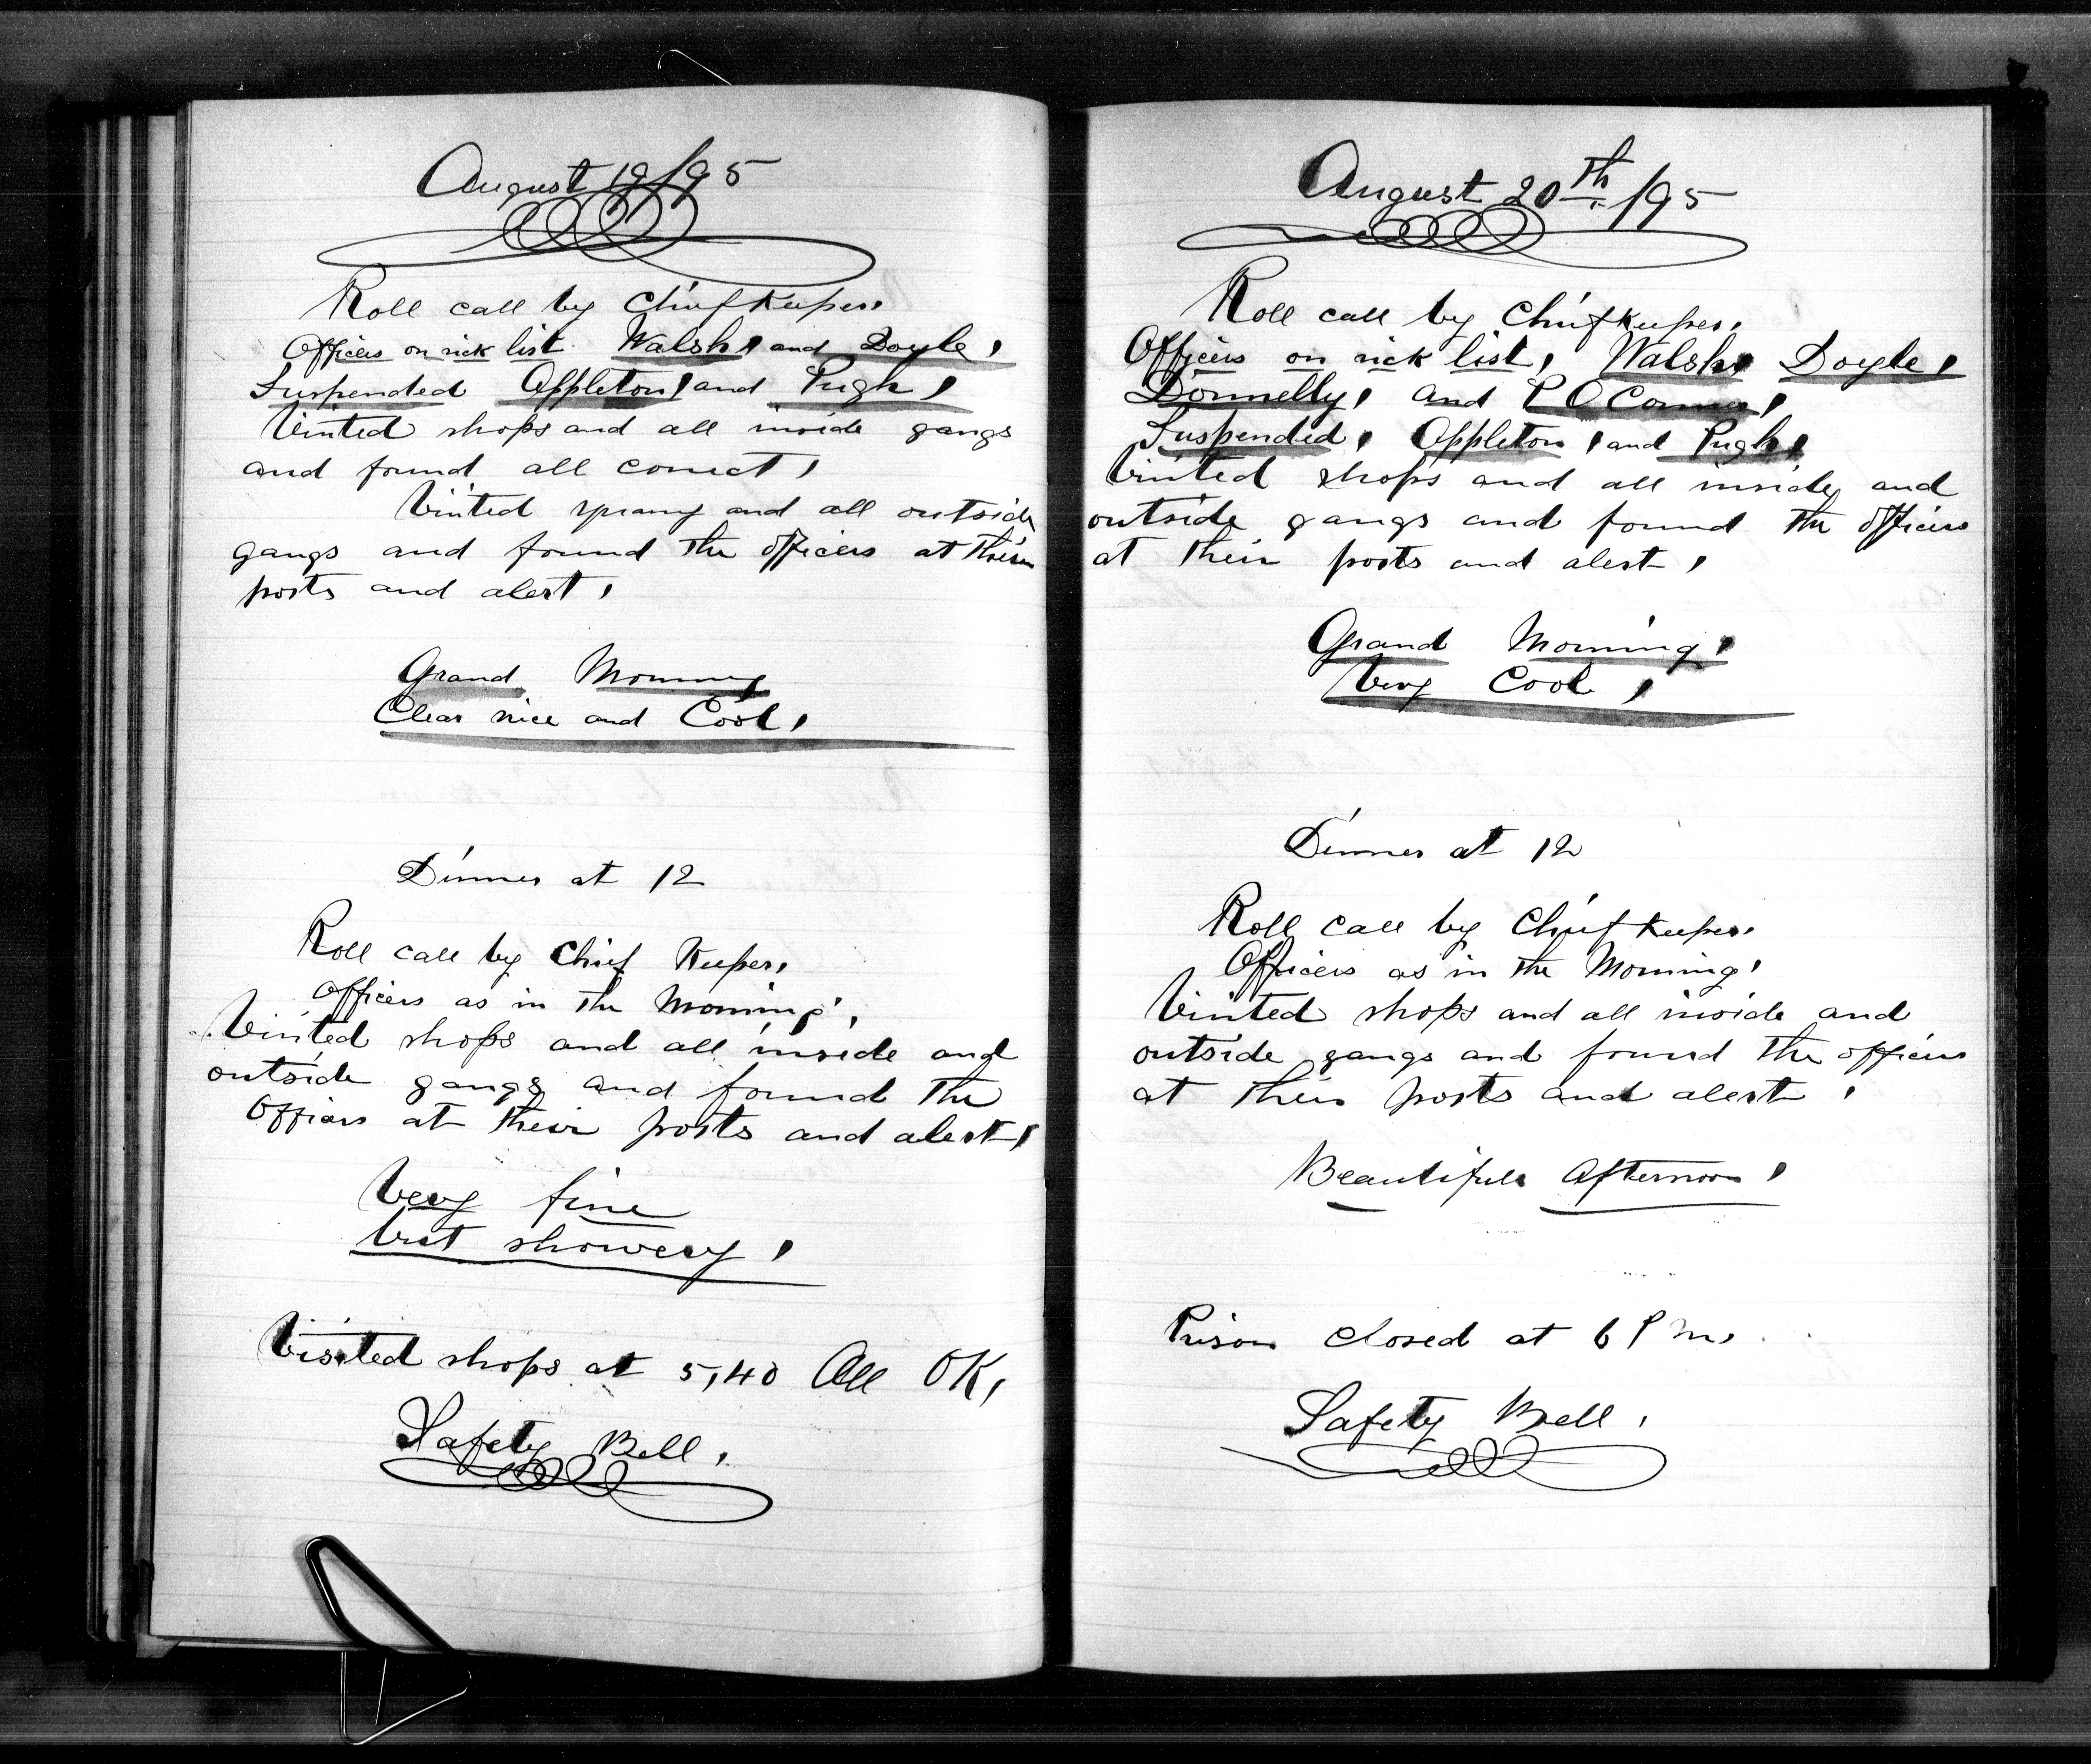 August 19/95
Roll call by Chief Keeper,
Officers on sick list Walsh, and Doyle,
Suspended Appleton, and Pugh,
Visited shops and all inside gangs
and found all correct,
Visited and all outside
gangs and found the officers at their
posts and alert,
Grand Morning
Clear nice and Cool,
Dinner at 12
Roll call by Chief Keeper,
Officers as in the Morning,
Visited shops and all inside and
outside gangs and found the
officers at their posts and alert,
Very fine
but showery,
Visited shops at 5,40 All OK,
Safety Bell,
August 20th /95
Roll call by Chief Keeper,
Officers on sick list, Walsh, Doyle,
Donnelly, and P O Connor,
Suspended, Appleton, and Pugh,
Visited shops and all inside, and
outside gangs and found the officers
at their posts and alert,
Grand Morning,
Very Cool,
Dinner at 12
Roll call by Chief Keeper,
Officers as in the Morning,
Visited shops and all inside and
outside gangs and found the officers
at their posts and alert,
Beautiful Afternoon,
Prison closed at 6 P M,
Safety Bell,